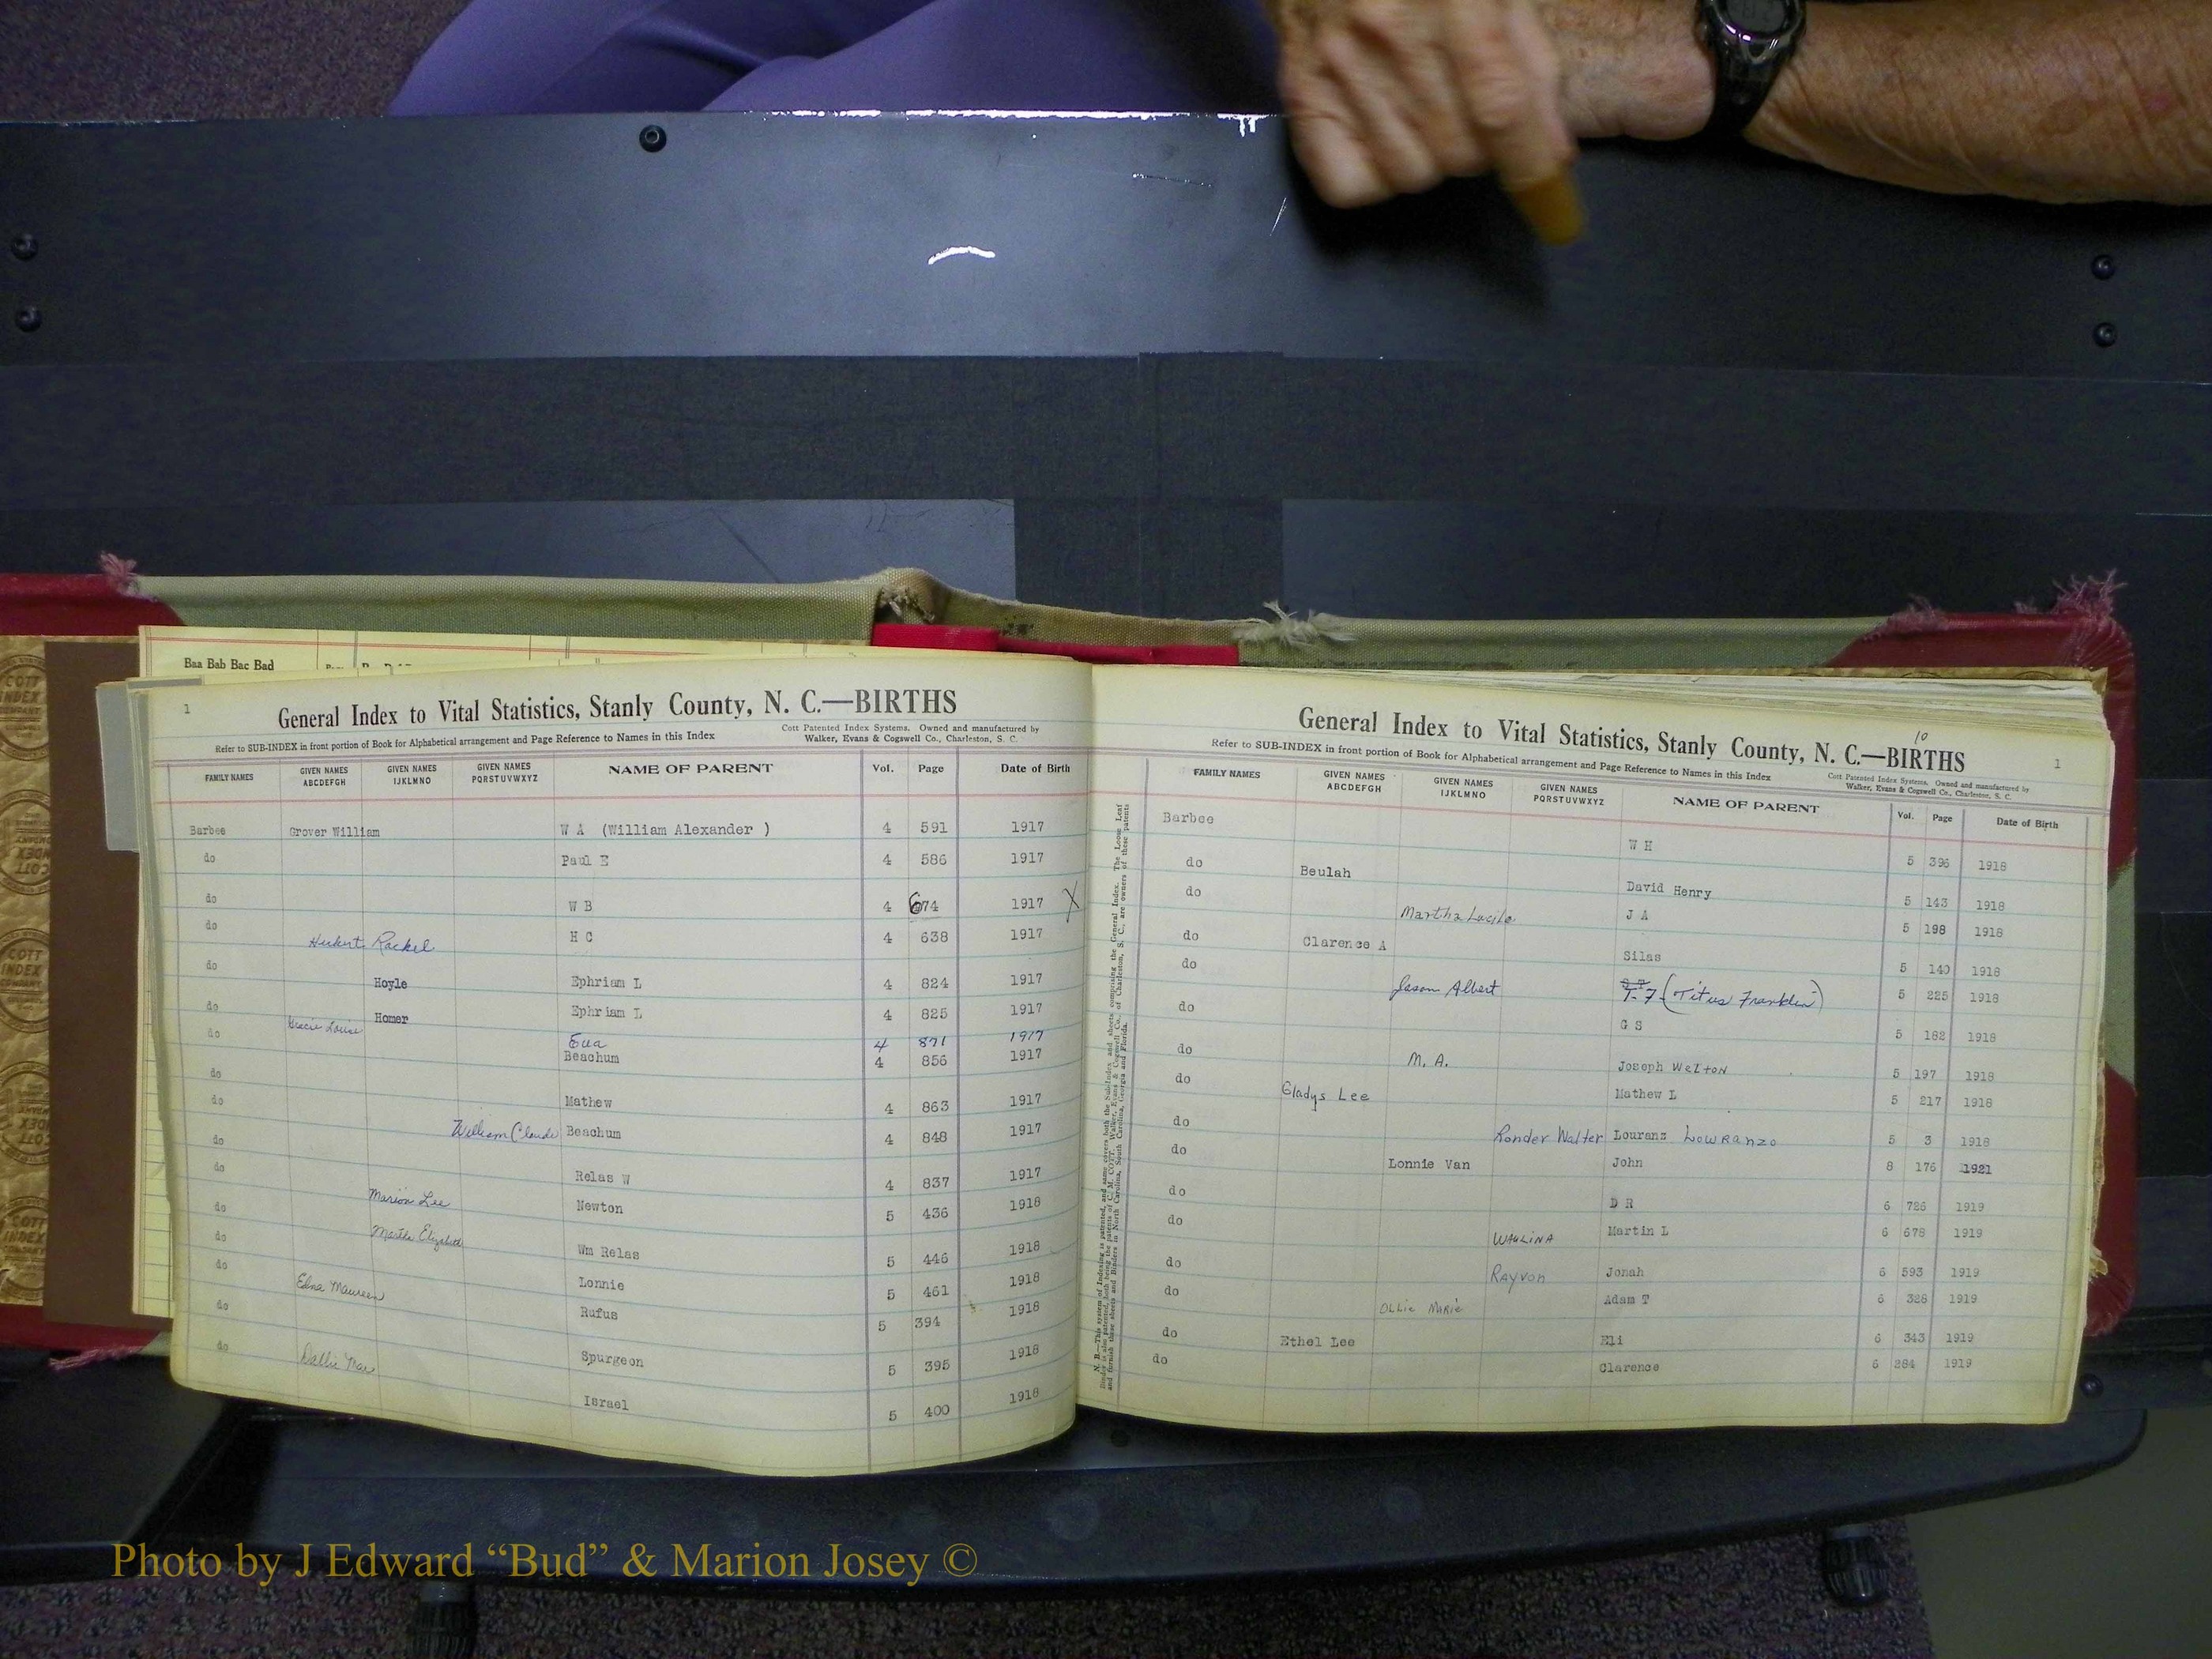 Baa Bab Bac Bad
1
General Index to Vital Statistics, Stanly County, N. C.—BIRTHS
Refer to SUB-INDEX in front portion of Book for Alphabetical arrangement and Page Reference to Names in this Index
Cott Patented Index Systems. Owned and manufactured by
Walker, Evans & Cogswell Co., Charleston, S. C.
FAMILY NAMES GIVEN NAMES ABCDEFGH GIVEN NAMES IJKLMNO GIVEN NAMES PQRSTUVWXYZ NAME OF PARENT Vol. Page Date of Birth
Barbee Grover William W A (William Alexander ) 4 591 1917
do Paul E 4 586 1917
do W B 4 674 1917 X
do Hubert Rackel H C 4 638 1917
do Hoyle Ephriam L 4 824 1917
do Homer Ephriam L 4 825 1917
Gracie Louise Eua 4 871 1917
do Beachum 4 856 1917
do Mathew 4 863 1917
do William Claude Beachum 4 848 1917
do Relas W 4 837 1917
do Marion Lee Newton 5 436 1918
do Wm Relas 5 446 1918
do Martha Elizabeth Lonnie 5 461 1918
do Edna Maureen Rufus 5 394 1918
do Spurgeon 5 395 1918
do Dallie Mae Israel 5 400 1918
10
General Index to Vital Statistics, Stanly County, N. C.—BIRTHS
1
Refer to SUB-INDEX in front portion of Book for Alphabetical arrangement and Page Reference to Names in this Index
Cott Patented Index Systems. Owned and manufactured by
Walker, Evans & Cogswell Co., Charleston, S. C.
FAMILY NAMES GIVEN NAMES ABCDEFGH GIVEN NAMES IJKLMNO GIVEN NAMES PQRSTUVWXYZ NAME OF PARENT Vol. Page Date of Birth
Barbee W H 5 396 1918
do Beulah David Henry 5 143 1918
do Martha Lucile J A 5 198 1918
do Clarence A Silas 5 140 1918
do Jason Albert T-F (Titus Franklin) 5 225 1918
do G S 5 182 1918
do M. A. Joseph Welton 5 197 1918
do Gladys Lee Mathew L 5 217 1918
do Ronder Walter Louranz Lowranzo 5 3 1918
do Lonnie Van John 8 176 1921
do D R 6 726 1919
do Waulina Martin L 6 678 1919
do Rayvon Jonah 6 593 1919
do Ollie Marie Adam T 6 328 1919
do Ethel Lee Eli 6 343 1919
do Clarence 6 284 1919
Photo by J Edward “Bud” & Marion Josey ©